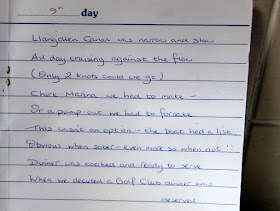 9th day
Llangollen Canal was narrow and slow
All day cruising against the flow
(Only 2 knots could we go)
Chirk Marina we had to make –
Or a pump-out we had to forsake
This wasn't an option – the boat had a list
Obvious when sober – even more so when not !!
Dinner was cooked and ready to serve
When we decided a Golf Club dinner was
deserved